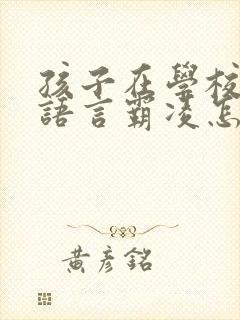 孩子在學校
語言霸凌怎
黃彥銘